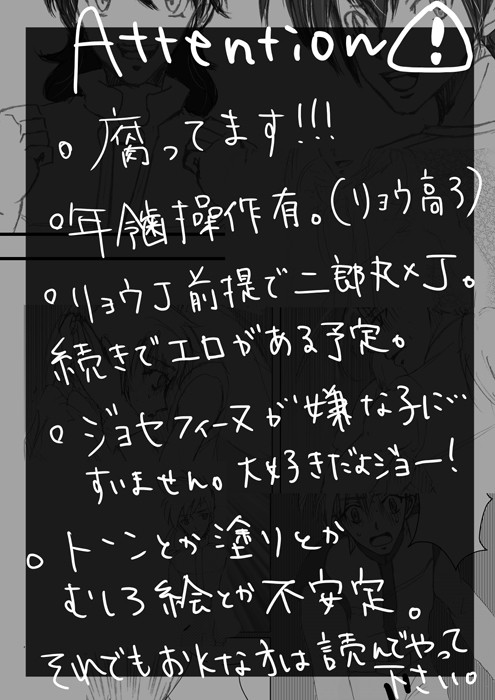 Attention
。腐ってます!!!
。年齢操作有。(リョウ高3)
。リョウJ前提で二郎丸×J。
続きでエロがある予定。
。ジョセフィーヌが嫌な子に…
すいません。大好きだよジョー!
。トーンとか塗りとか
むしろ絵とか不安定。
それでもおkな方は読んでやって
下さい。